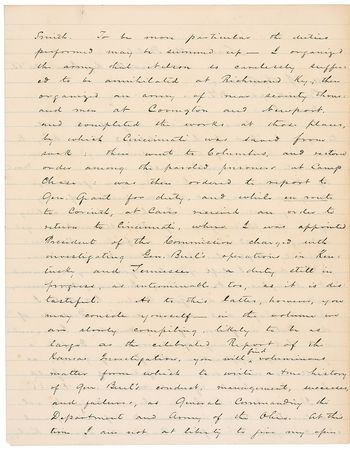 Smith. To be more particular the duties
performed may be summed up — I organized
the army that Nelson so carelessly suffer-
ed to be annihilated at Richmond Ky; then
organized an army of near seventy thous-
and men at Covington and Newport
and completed the works at those places,
by which Cincinnati was saved from
sack; then went to Columbus, and restored
order among the paroled prisoners at Camp
Chase; was then ordered to report to
Gen. Grant for duty, and while en route
to Corinth, at Cairo received an order to
return to Cincinnati, where I was appointed
President of the Commission charged with
investigating Gen. Buel's operations in Ken-
tucky and Tennessee — a duty still in
progress, as interminable too, as it is dis-
tasteful. As to this latter, however, you
may console yourself — in the volume we
are slowly compiling, likely to be as
large as the celebrated Report of the
Kansas Investigation, you will find voluminous
matter from which to write a true history
of Gen Buel's conduct, management, successes,
and failures, as General Commanding the
Department and Army of the Ohio. At this
time I am not at liberty to give my opin-